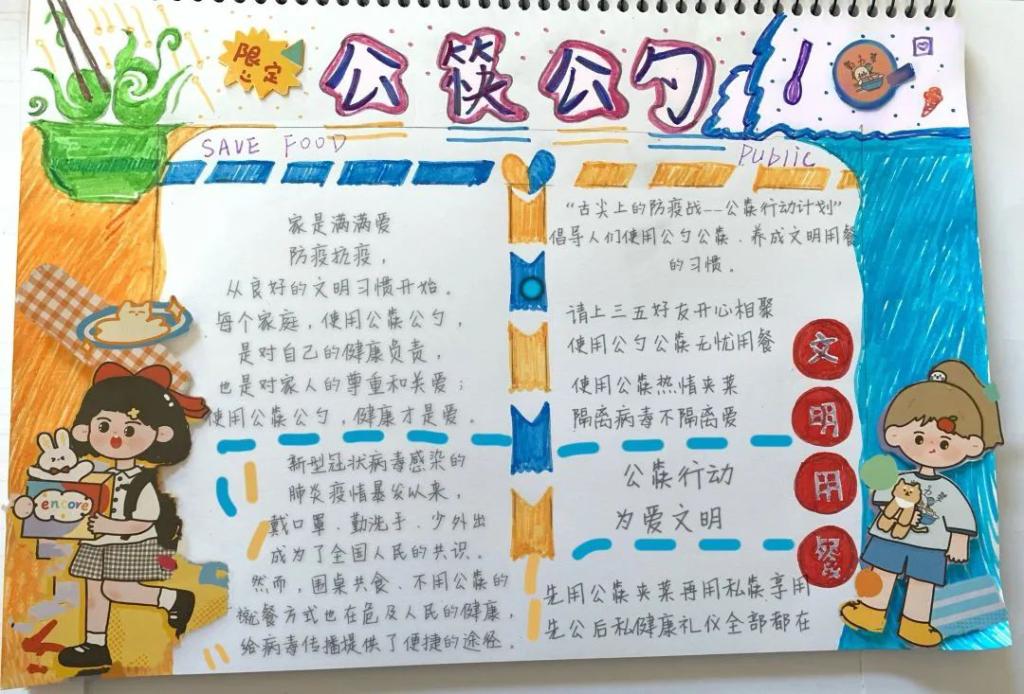 限定
公筷公勺
SAVE FOOD
Public
家是满满爱
防疫抗疫，
从良好的文明习惯开始。
每个家庭，使用公筷公勺，
是对自己的健康负责，
也是对家人的尊重和关爱；
使用公筷公勺，健康才是爱。
新型冠状病毒感染的
肺炎疫情暴发以来，
戴口罩、勤洗手、少外出
成为了全国人民的共识。
然而，围桌共食、不用公筷的
就餐方式也在危及人民的健康，
给病毒传播提供了便捷的途径。
“舌尖上的防疫战——公筷行动计划”
倡导人们使用公勺公筷、养成文明用餐
的习惯。
请上三五好友开心相聚
使用公勺公筷无忧用餐
使用公筷热情夹菜
隔离病毒不隔离爱
公筷行动
为爱文明
先用公筷夹菜再用私筷享用
先公后私健康礼仪全部都在
文
明
用
餐
encore